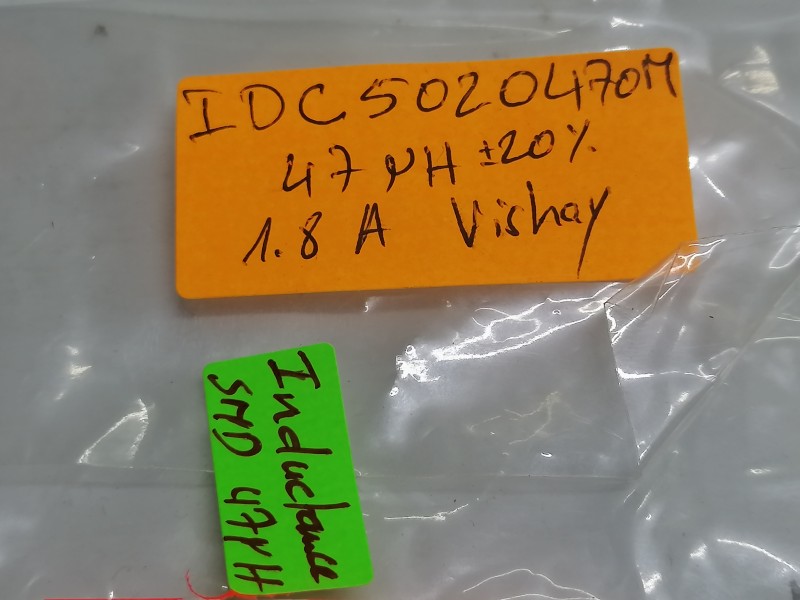 IDC5020470M
47 µH ±20%
1.8 A Vishay
Inductance
SMD 47µH